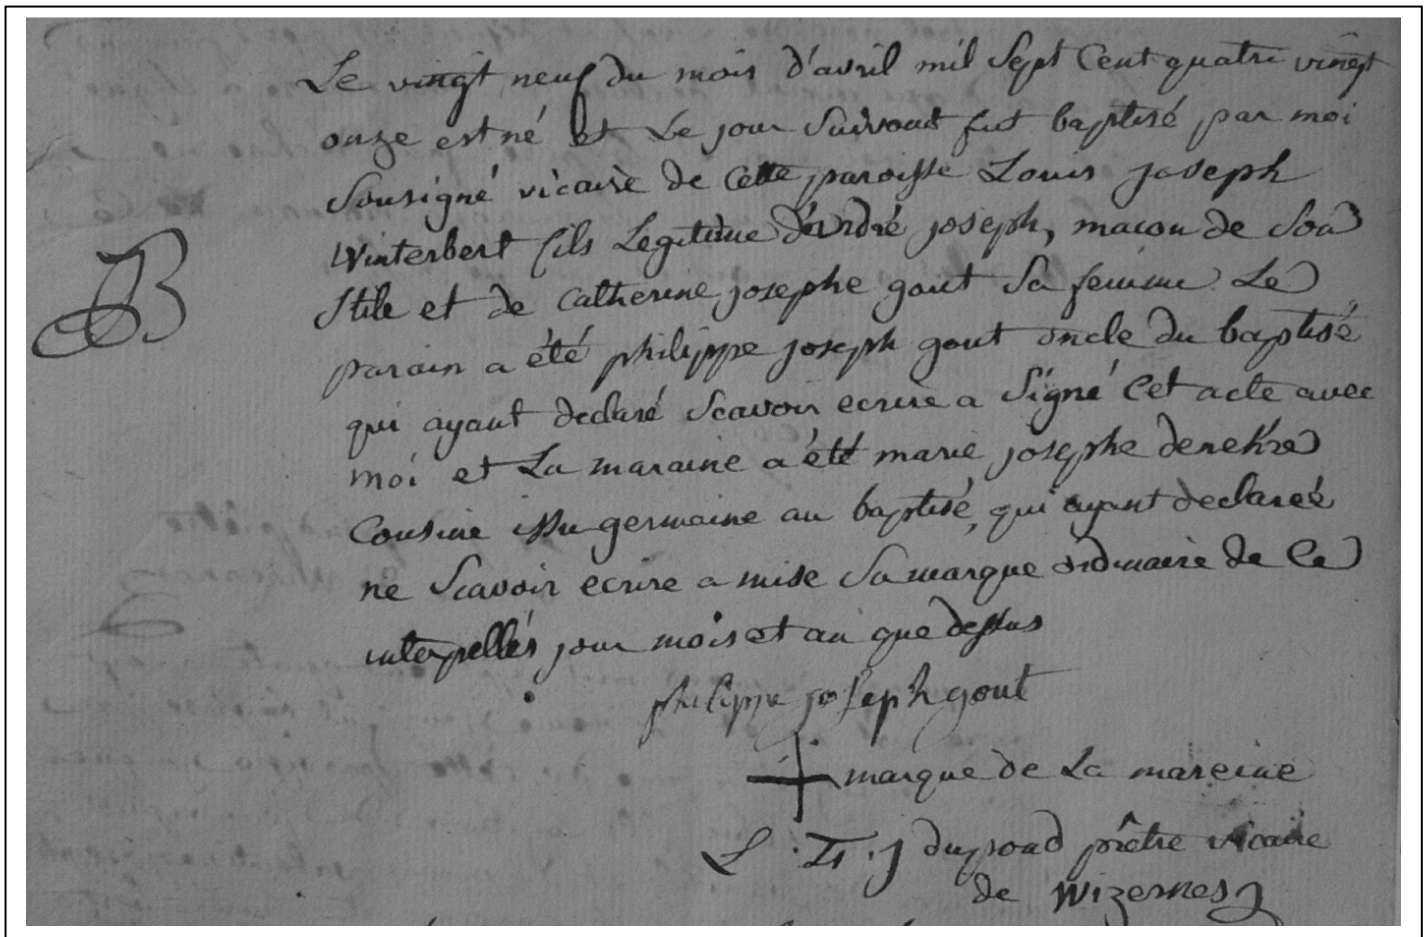 Le vingt neuf du mois d'avril mil Sept Cent quatre vingt
onze est né et Le jour Suivant fut baptisé par moi
Sousigné vicaire de Cette paroisse Louis Joseph
Winterbert fils Legitime d'andré joseph, macon de Son
Stile et de Catherine josephe gout Sa femme Le
B
parain a été philippe joseph gout oncle du baptisé
qui ayant declaré Scavoir ecrire a Signé Cet acte avec
moi et La maraine a été marie josephe
Cousine issu germaine au baptisé, qui ayant declareé
ne Scavoir ecrire a mise Sa marque ordinaire de Ce
interpellés jour mois et an que dessus
philippe joseph gout
marque de La mareine
L. F. J dupond prêtre vicaire
de Wizernes